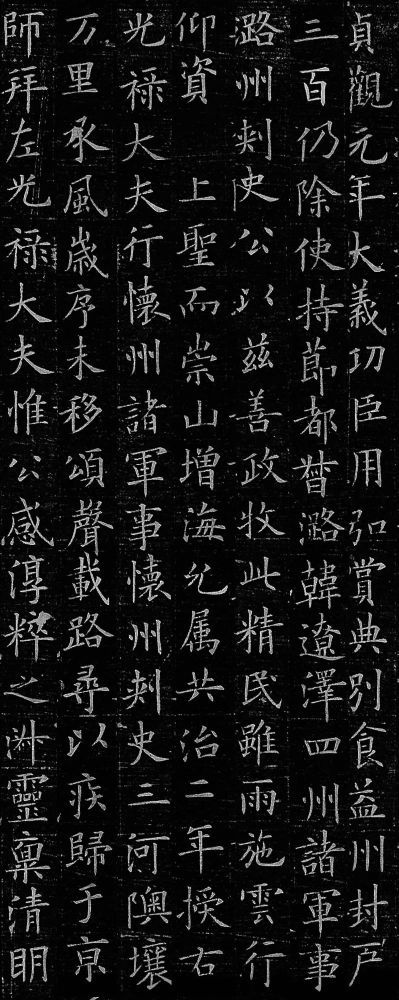 貞觀元年大義功臣用弘賞典別食益州封戶
三百仍除使持節都督潞韓遼澤四州諸軍事
潞州刾史公以茲善政牧此精民雖雨施雲行
仰資 上聖而崇山增海允属共治二年授右
光祿大夫行懷州諸軍事懷州刾史三河隩壤
万里承風歲序未移頌聲載路尋以疾歸于京
師拜左光祿大夫惟公感淳粹之淋靈稟清明